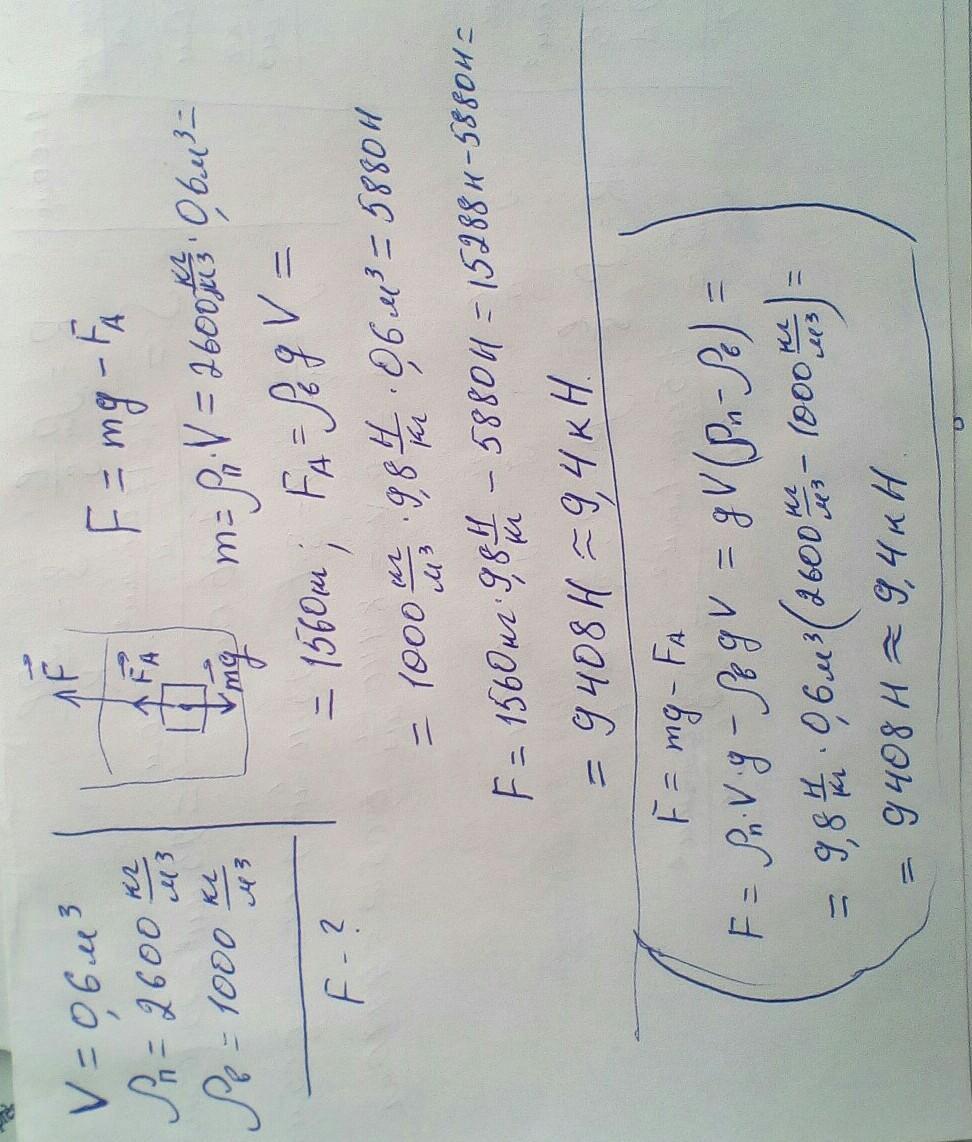 V = 0,6 м³
ρп = 2600 кг/м³
ρв = 1000 кг/м³
F - ?
F
FA
mg
F = mg - FA
m = ρп · V = 2600 кг/м³ · 0,6 м³ =
= 1560 кг ; FA = ρв g V =
= 1000 кг/м³ · 9,8 Н/кг · 0,6 м³ = 5880 Н
F = 1560 кг · 9,8 Н/кг - 5880 Н = 15288 Н - 5880 Н =
= 9408 Н ≈ 9,4 кН.
F = mg - FA
F = ρп · V · g - ρв g V = g V (ρп - ρв) =
= 9,8 Н/кг · 0,6 м³ (2600 кг/м³ - 1000 кг/м³) =
= 9408 Н ≈ 9,4 кН.